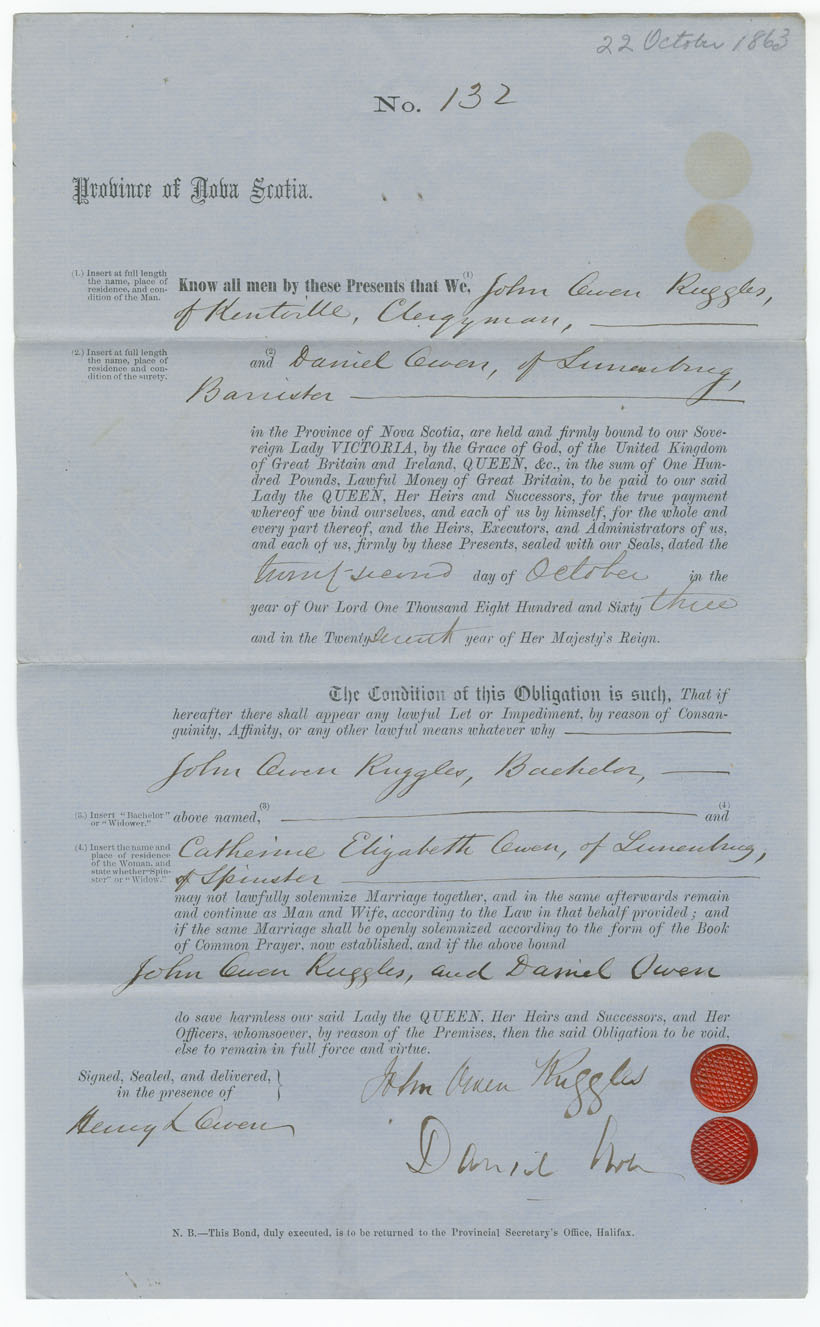 22 October 1863
No. 132
Province of Nova Scotia.
(1.) Insert at full length
the name, place of
residence, and con-
dition of the Man.
Know all men by these Presents that We, (1) John Owen Ruggles,
of Kentville, Clergyman,
(2.) Insert at full length
the name, place of
residence and con-
dition of the surety.
and (2) Daniel Owen, of Lunenburg,
Barrister
in the Province of Nova Scotia, are held and firmly bound to our Sove-
reign Lady VICTORIA, by the Grace of God, of the United Kingdom
of Great Britain and Ireland, QUEEN, &c., in the sum of One Hun-
dred Pounds, Lawful Money of Great Britain, to be paid to our said
Lady the QUEEN, Her Heirs and Successors, for the true payment
whereof we bind ourselves, and each of us by himself, for the whole and
every part thereof, and the Heirs, Executors, and Administrators of us,
and each of us, firmly by these Presents, sealed with our Seals, dated the
twenty-second day of October in the
year of Our Lord One Thousand Eight Hundred and Sixty three
and in the Twenty seventh year of Her Majesty's Reign.
The Condition of this Obligation is such, That if
hereafter there shall appear any lawful Let or Impediment, by reason of Consan-
guinity, Affinity, or any other lawful means whatever why
John Owen Ruggles, Bachelor,
(3.) Insert "Bachelor"
or "Widower."
above named, (3) and (4)
(4.) Insert the name and
place of residence
of the Woman, and
state whether "Spin-
ster" or "Widow."
Catherine Elizabeth Owen, of Lunenburg,
of Spinster
may not lawfully solemnize Marriage together, and in the same afterwards remain
and continue as Man and Wife, according to the Law in that behalf provided; and
if the same Marriage shall be openly solemnized according to the form of the Book
of Common Prayer, now established, and if the above bound
John Owen Ruggles, and Daniel Owen
do save harmless our said Lady the QUEEN, Her Heirs and Successors, and Her
Officers, whomsoever, by reason of the Premises, then the said Obligation to be void,
else to remain in full force and virtue.
Signed, Sealed, and delivered,
in the presence of
John Owen Ruggles
Henry L Owen
Daniel Owen
N. B.—This Bond, duly executed, is to be returned to the Provincial Secretary's Office, Halifax.